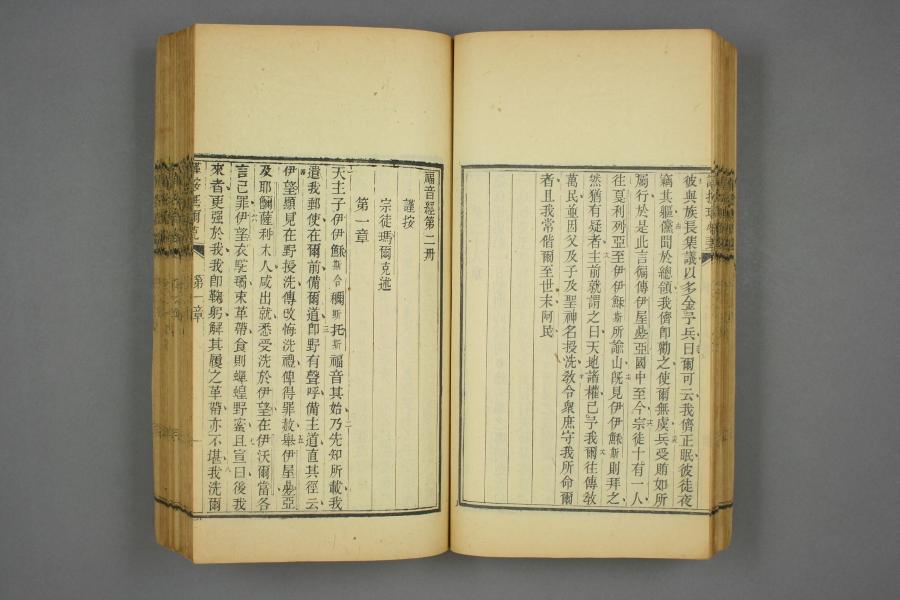 彼與族長集議以多金予兵曰爾可云我儕正眠彼徒夜
竊其軀儻聞於總領我儕卽勸之使爾無虞兵受賄如所
囑行於是此言徧傳伊屋疊亞國中至今宗徒十有一人
往戛利列亞至伊伊穌斯所諭山旣見伊伊穌斯則拜之
然猶有疑者主前就謂之曰天地諸權已予我爾往傳教
萬民並因父及子及聖神名授洗教令衆庶守我所命爾
者且我常偕爾至世末阿民
福音經第二冊
謹按
宗徒瑪爾克述
第一章
天主子伊伊穌斯合Misc斯托斯福音其始乃先知所載我
遣我郵使在爾前備爾道卽野有聲呼備主道直其徑云
伊望顯見在野授洗傳改悔洗禮俾得罪赦舉伊屋疊亞
及耶薩利木人咸出就悉受洗於伊望在伊沃爾當各
言己罪伊望衣駝毛束革帶食則蝗野蜜且宣曰後我
來者更强於我我卽鞠躬解其履之革帶亦不堪我洗爾
第一章